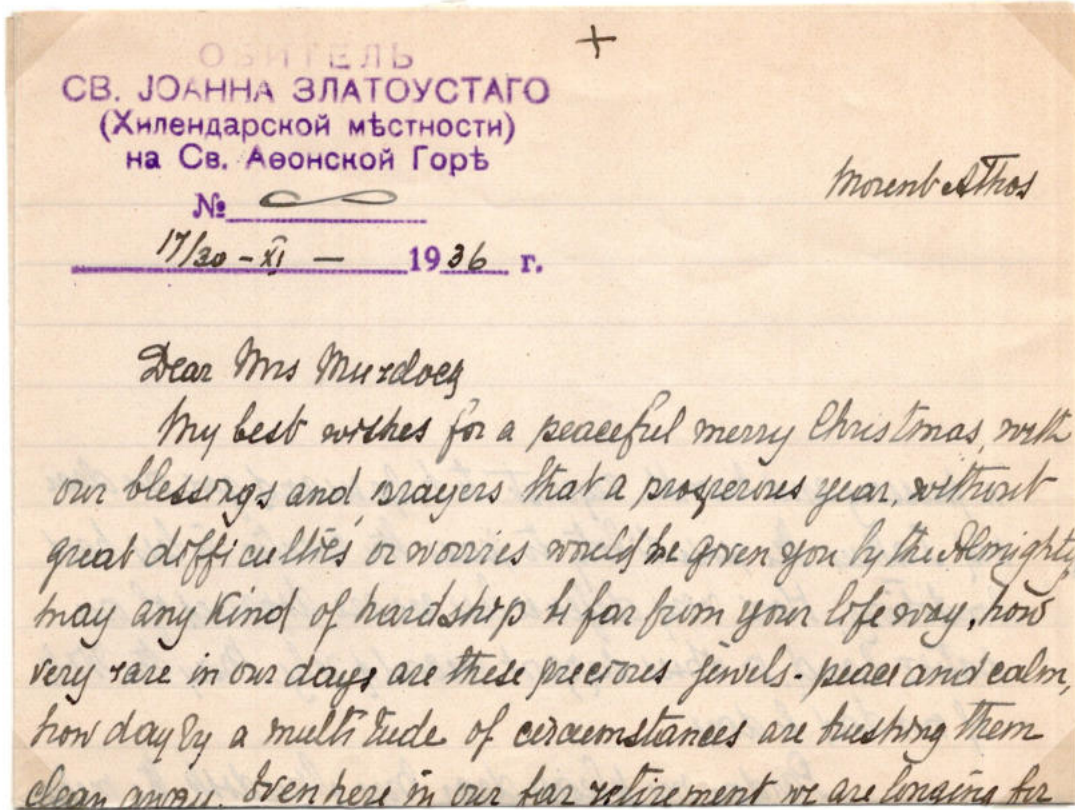 +
ОБИТЕЛЬ
СВ. ЈОАННА ЗЛАТОУСТАГО
(Хилендарской мѣстности)
на Св. Аѳонской Горѣ
№
17/30 - XI — 1936 г.
Mount Athos
Dear Mrs Murdoch
My best wishes for a peaceful merry Christmas, with
our blessings and prayers that a prosperous year, without
great difficulties or worries would be given you by the Almighty
may any kind of hardship be far from your life way, how
very rare in our days are these precious jewels - peace and calm,
how day by a multitude of circumstances are hushing them
clean away. Even here in our far retirement we are longing for